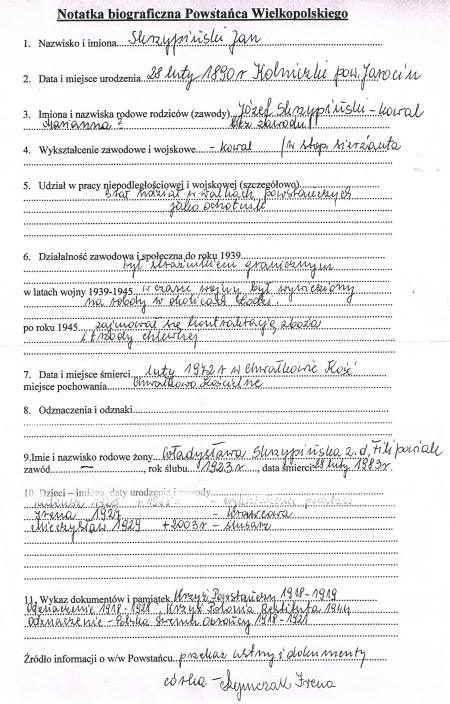 Notatka biograficzna Powstańca Wielkopolskiego
1. Nazwisko i imiona Skrzypiński Jan
2. Data i miejsce urodzenia 28 luty 1890 r Kolniczki pow. Jarocin
3. Imiona i nazwiska rodowe rodziców (zawody) Józef Skrzypiński – kowal
Marianna ? bez zawodu
4. Wykształcenie zawodowe i wojskowe – kowal /w stop sierżanta
5. Udział w pracy niepodległościowej i wojskowej (szczegółowo)
brał udział w walkach powstańczych
jako ochotnik
6. Działalność zawodowa i społeczna do roku 1939
był strażnikiem granicznym
w latach wojny 1939-1945 w czasie wojny był wywieziony
na roboty w okolicach Łodzi.
po roku 1945 zajmował się kontraktacją zboża
i trzody chlewnej
7. Data i miejsce śmierci luty 1972 r w Chwałkowie Kość
miejsce pochowania Chwałkowo Kościelne
8. Odznaczenia i odznaki
9.Imie i nazwisko rodowe żony Władysława Skrzypińska z d. Filipowiak
zawód – , rok ślubu 1923 r , data śmierci 28 luty 1983 r.
10. Dzieci – imiona, daty urodzenia i zawody
Irena 1927 – krawcowa
Mieczysław 1929 +2003 r – ślusarz
11. Wykaz dokumentów i pamiątek Krzyż Powstańczy 1918-1919
Odznaczenie 1918-1928, Krzyż Polonia Restituta 1944
Odznaczenie – Polska Swemu Obrońcy 1918-1921
Źródło informacji o w/w Powstańcu przekaz ustny i dokumenty
córka – Irena